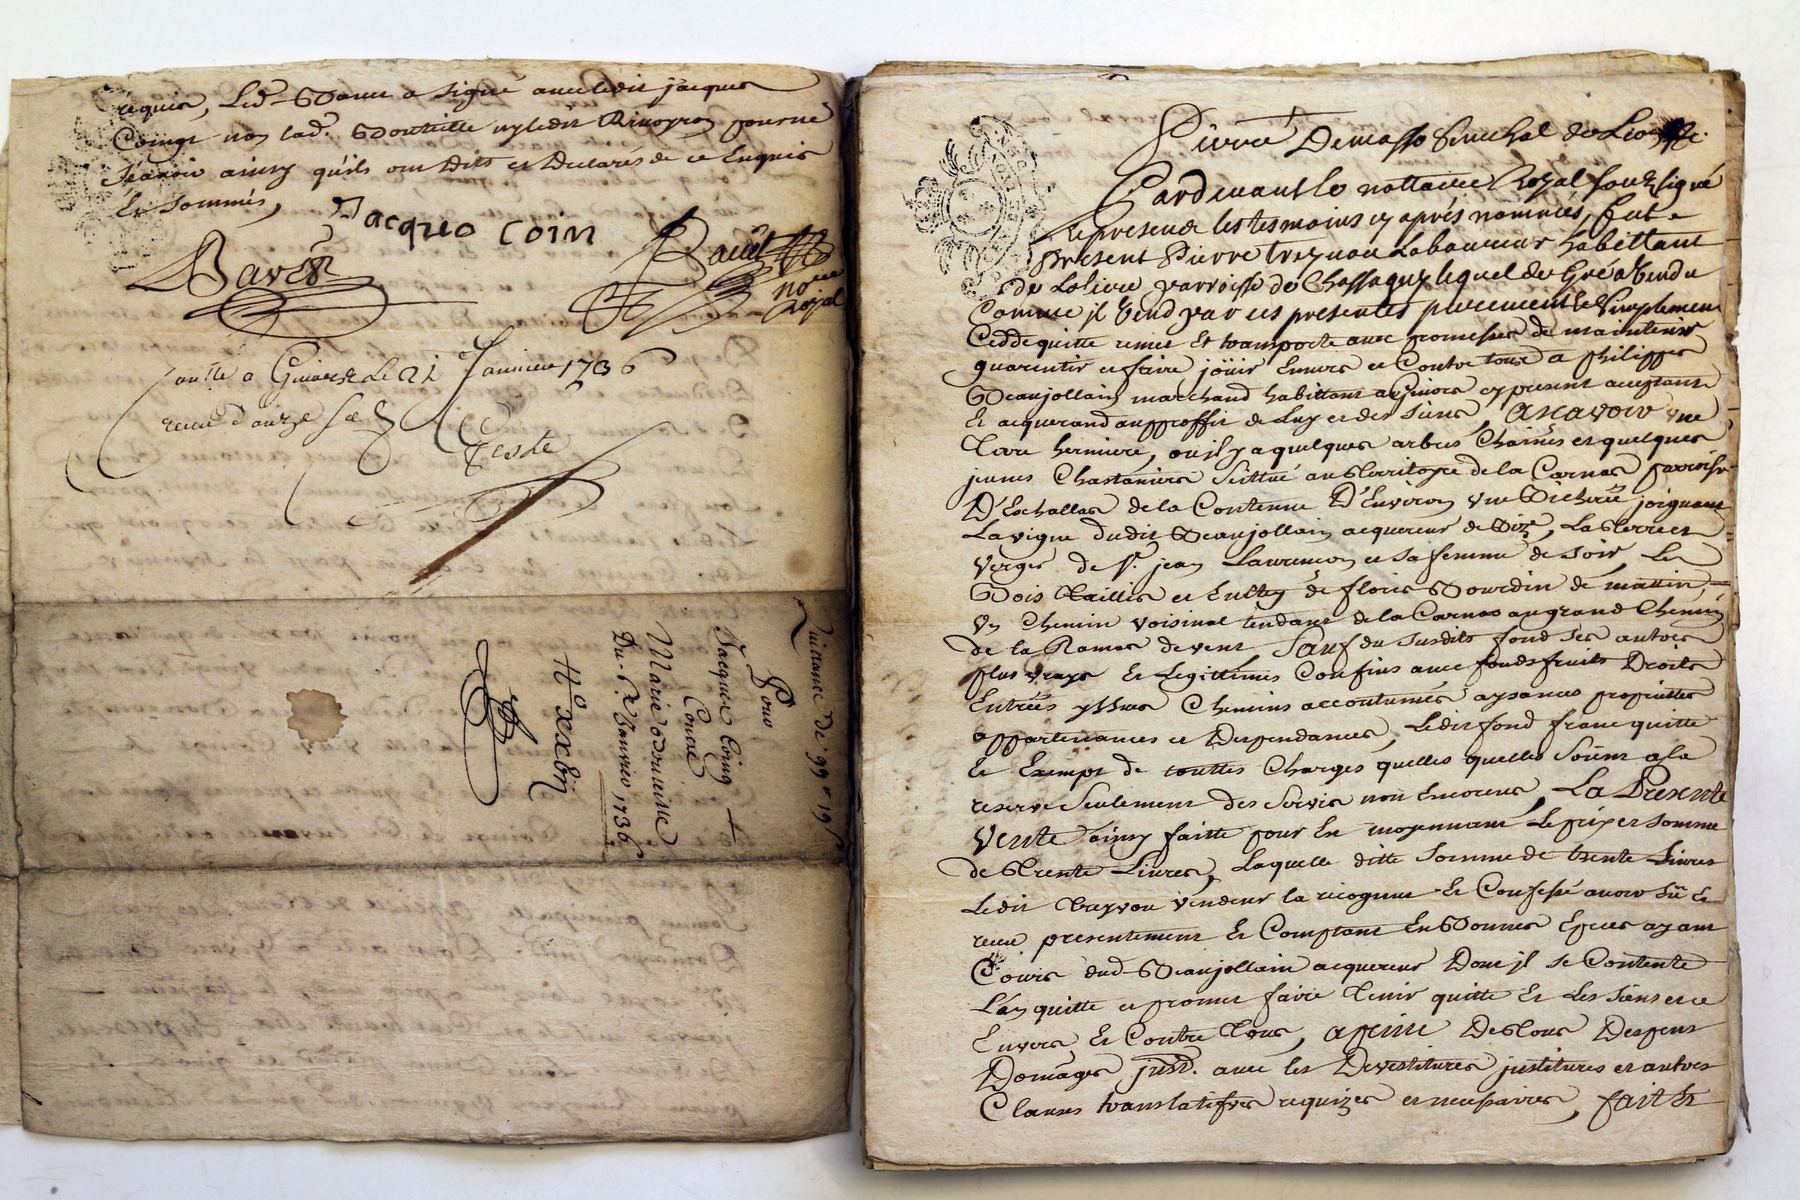 requis, Led. Bavet a signé avec ledit jacques
Coingt non lad. Bouteille ny ledit Rivoyron pour ne
Scavoir ainsy qu'ils ont Dits et Declarés de ce Enquis
Et Sommés,
Jacques coin
Bavet
Bavet
no.re
royal
à Givors Le 21 Janvier 1736
receu douze
Teste
Quittance De 99 # 19 s
Pour
Jacque Coing
Contre
Marie Bouteille
Du Janvier 1736
N.o
Pierre Demasso Senechal de Lion
Pardevant le nottaire Royal soubsigné
et presence les tesmoins cy aprés nommés, fut
present Pierre treynou Laboureur habittant
de paroisse de Chassagny lequel de Gré a vendu
Comme jl vend par ces presentes purement et simplement
Cedde quitte remet et transporte avec promesses de maintenir
guarentir et faire jöuir Envers et Contre tous a philippes
Beaujollain marchand habittant a Givors cy present acceptant
et acquerand au proffit de Luy et des siens Ascavoir une
terre hermiere, ou jl y a quelques arbres Chaines et quelques
jeunes Chastaniers Scittué au Territoyre de la Carnas parroisse
D'Eschallas de la Contenue D'Environ une Bicherée joignant
La vigne dudit Beaujollain acquereur de Bize, La Terre et
verger de Sr. jean Laurencon et sa femme de soir, Les
Bois Taillis et de floris Bourdin de mattin,
un Chemin voisinal tendant de la Carnas au grand Chemin
de la Ramas de vent Sauf du susdits fond ses autres
plus vrays et Legittimes Confins avec fonds fruits Droits
Entrées yssues Chemins accoutumés aysances proprietés
appartenances et Despendances, Ledit fond franc quitte
et Exempt de touttes Charges quelles quelles Soient a la
reserve Seulement des Servis non Encourus, La Presente
vente ainsy faitte pour Et moyennant Le prix et somme
de Trente Livres, Laquelle ditte Somme de trente Livres
Ledit treynou vendeur la recognut Et Confessé avoir Eü Et
receu presentement Et Comptant En Bonnes Especes ayant
Cours dud. Beaujollain acquereur Dont jl se Contente
L'en quitte et promet faire Tenir quitte Et Les Siens et ce
Envers Et Contre Tous, a peine De Tous Despens
Domages avec les Devestitures jnvestitures et autres
Clauses translatifves requizes et necessaires, fait Et